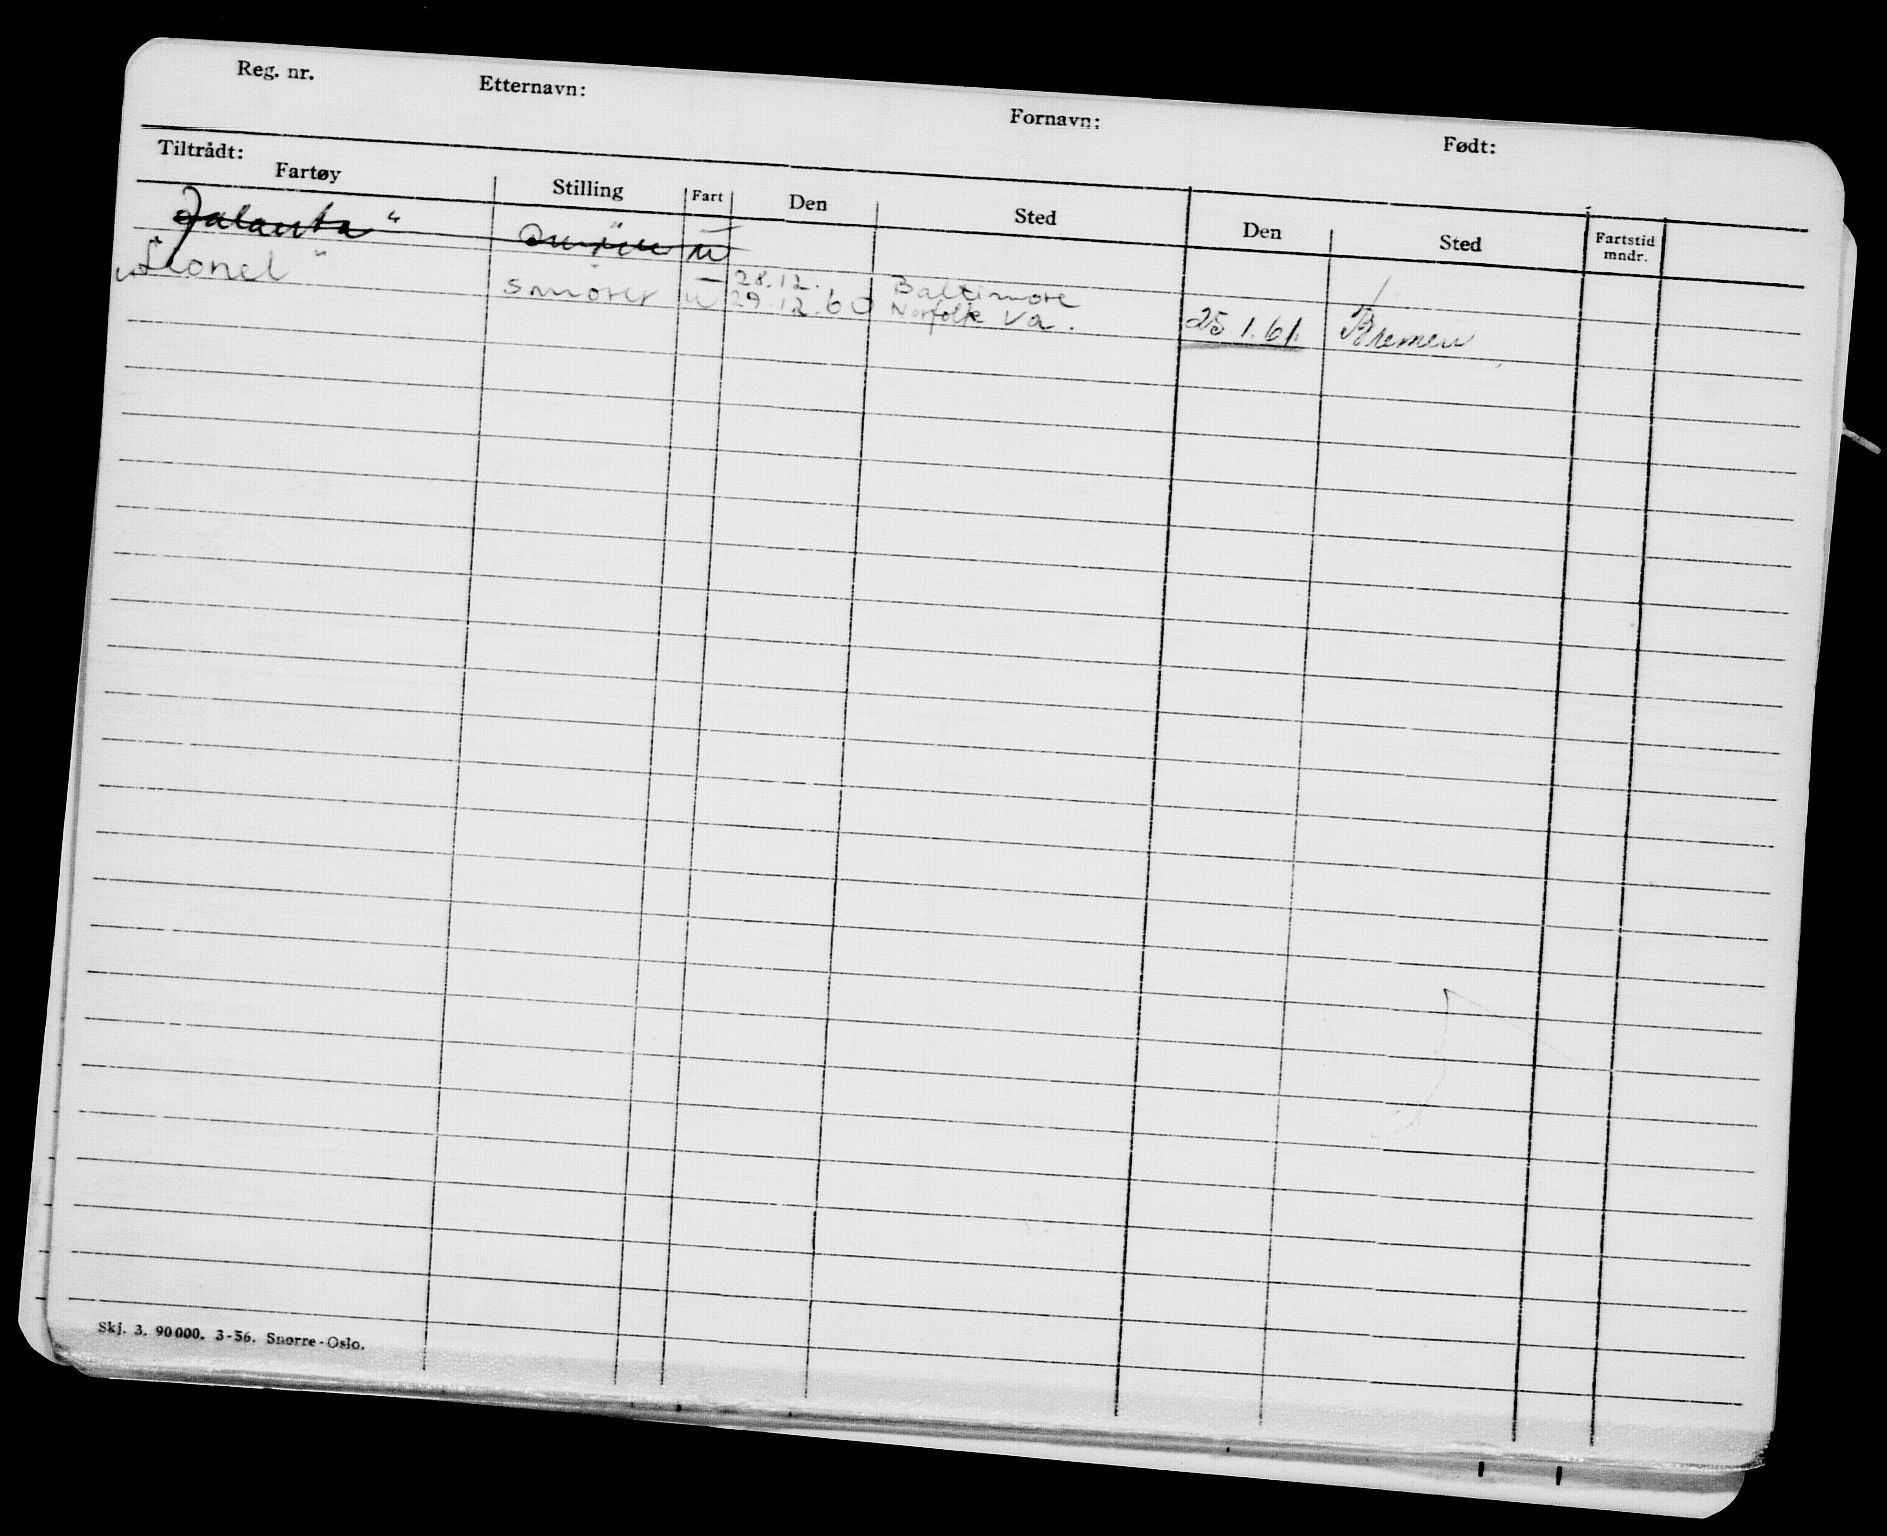 Reg. nr. Etternavn: Fornavn: Født:
Tiltrådt:
Fartøy Stilling Fart Den Sted Den Sted Fartstid mndr.
Jalanta " u
"Lionel" smører u 28.12. Baltimore
29.12.60 Norfolk Va. 25 1.61. Bremen
Skj. 3. 90000. 3-56. Snorre-Oslo.